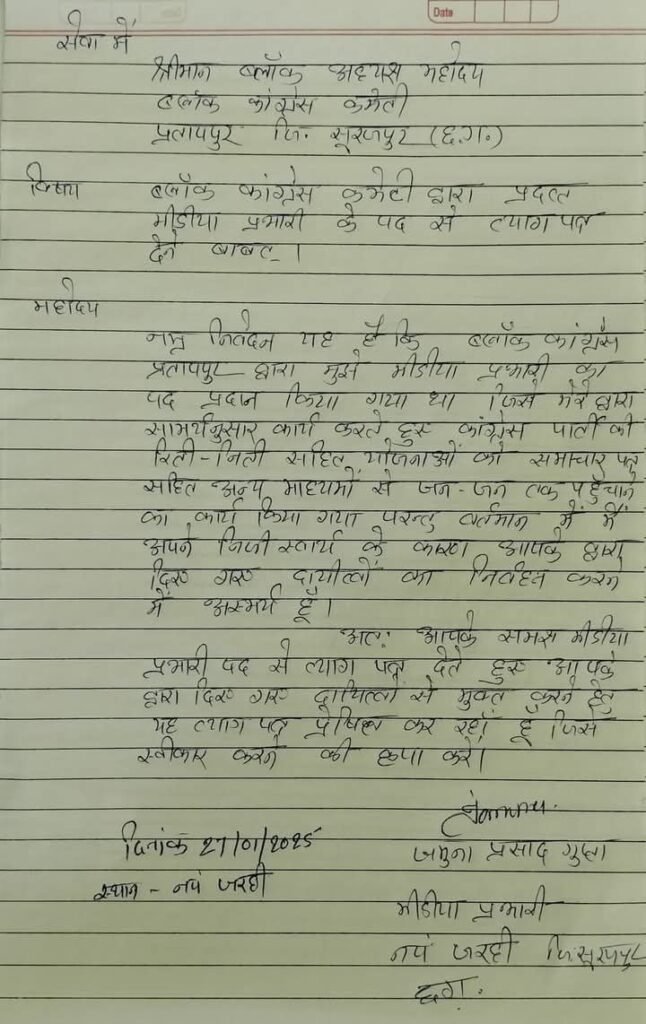 Date
सेवा में
श्रीमान ब्लॉक अध्यक्ष महोदय
ब्लॉक कांग्रेस कमेटी
प्रतापपुर जि. सूरजपुर (छ.ग.)
विषय ब्लॉक कांग्रेस कमेटी द्वारा प्रदत्त
मीडिया प्रभारी के पद से त्याग पत्र
देने बाबत् ।
महोदय
नम्र निवेदन यह है कि ब्लॉक कांग्रेस
प्रतापपुर द्वारा मुझे मीडिया प्रभारी का
पद प्रदान किया गया था जिसे मेरे द्वारा
सामर्थनुसार कार्य करते हुए कांग्रेस पार्टी की
रिती-निती सहित योजनाओं को समाचार पत्र
सहित अन्य माध्यमों से जन-जन तक पहुँचाने
का कार्य किया गया परन्तु वर्तमान में मैं
अपने निजी स्वार्थ के कारण आपके द्वारा
दिए गए दायीत्वों का निर्वहन करने
में अस्मर्थ हूँ।
अतः आपके समक्ष मीडिया
प्रभारी पद से त्याग पत्र देते हुए आपके
द्वारा दिए गए दायित्वों से मुक्त करने हेतु
यह त्याग पत्र प्रेषित कर रहाँ हूँ जिसे
स्वीकार करने की कृपा करें।
दिनांक 27/01/2025
जमुना प्रसाद गुप्ता
स्थान - नपं जरही
मीडीया प्रभारी
नपं जरही जि. सूरजपुर
छग.